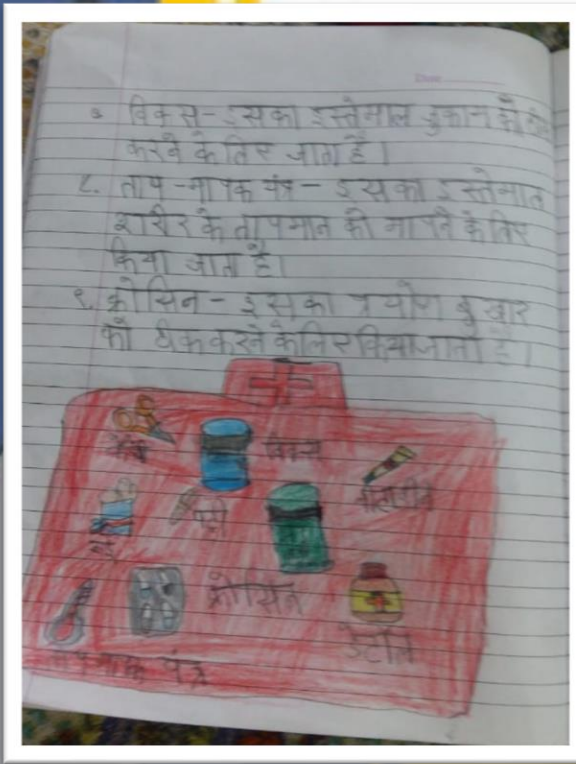 ७ विक्स - इसका इस्तेमाल जुकाम को ठीक
करने के लिए जाता है।
८. ताप - मापक यंत्र - इसका इस्तेमाल
शरिर के तापमान को मापने के लिए
किया जाता है।
९. क्रोसिन - इसका प्रयोग बुखार
को ठीक करने के लिए किया जाता है।
कैंची
विक्स
रुई
पट्टी
क्रोसिन
डेटॉल
तापमापक यंत्र